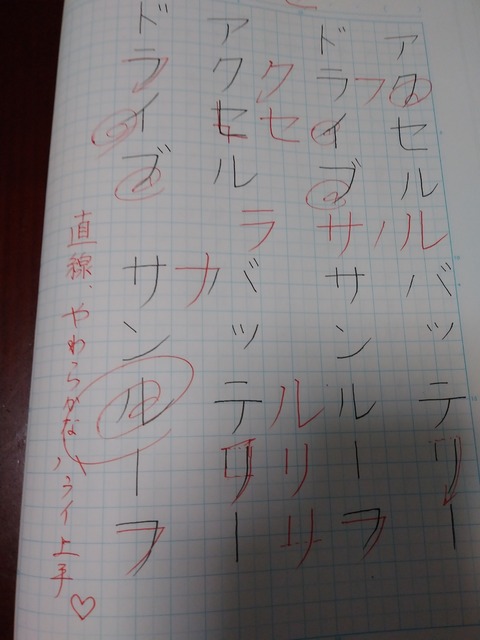 アクセル バッテリー
フ ルノサル
ドライブ サンルーフ
クセ ラ ルリリ
アクセル バッテリー
ナ
ドライブ サンルーフ
直線、やわらかなハライ上手♡